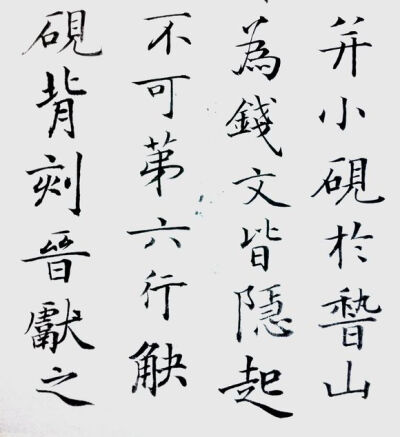 并小硯於稽山
為錢文皆隱起
不可苐六行觖
硯背刻晉獻之